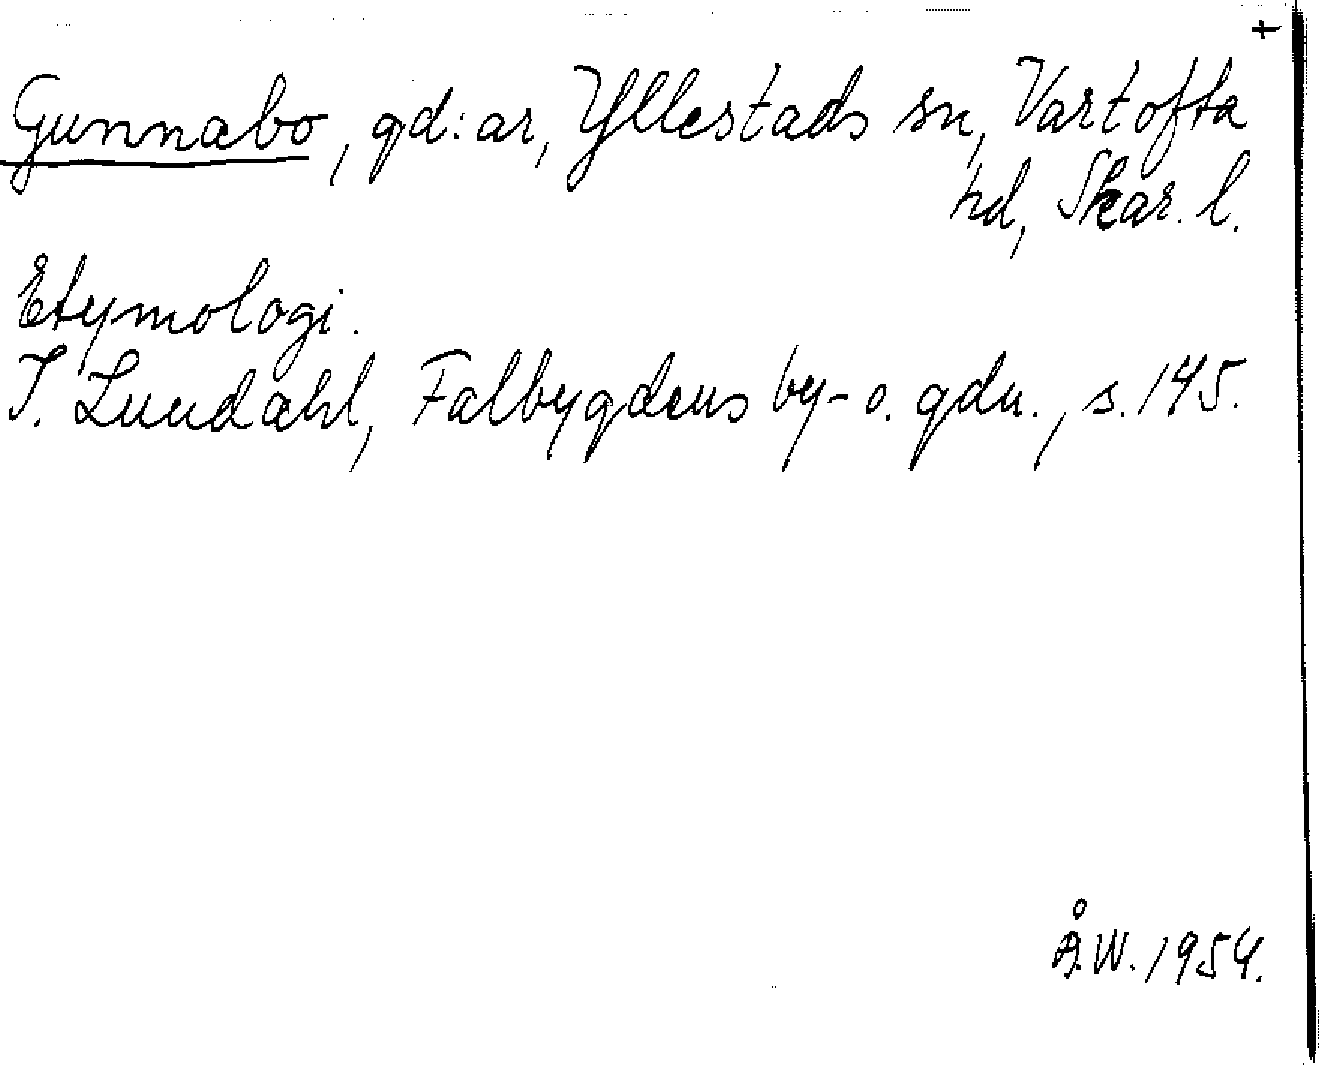 +
Gunnabo, gd:ar, Yllestads sn, Vartofta
hd, Skar. l.
Etymologi.
I. Lundahl, Falbygdens by- o. gdn., s. 145.
Å.W. 1954.